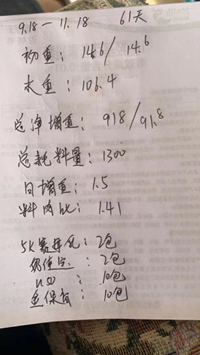 9.18 — 11.18 61天
初重: 14.6/14.6
末重: 106.4
总净增重: 918/91.8
总耗料量: 1300
日增重: 1.5
料肉比: 1.41
2包
2包
10包
10包